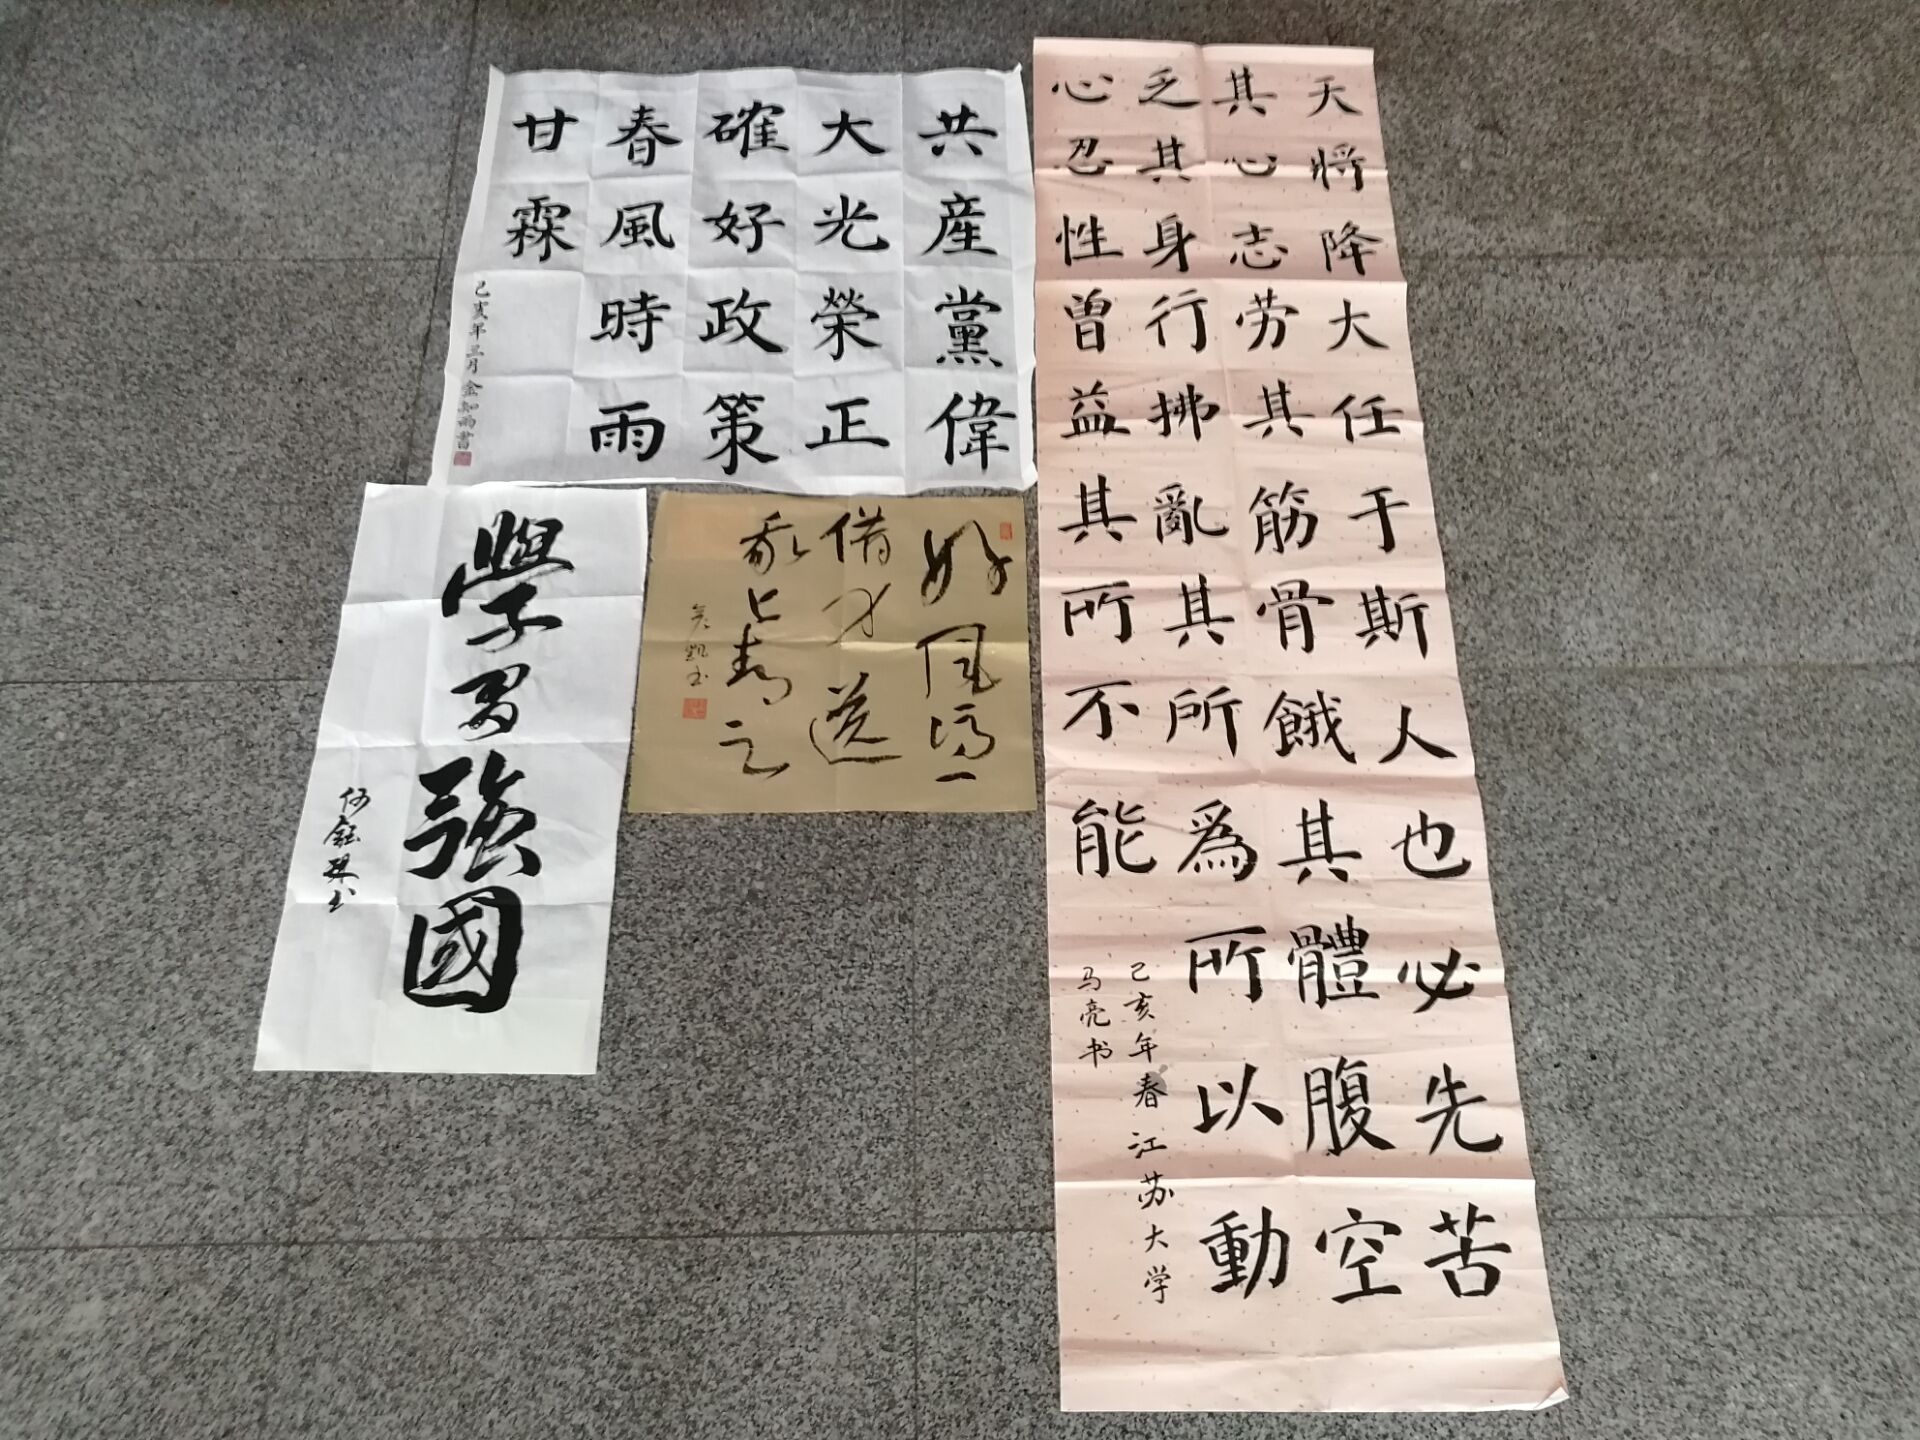 天将降大任于斯人也必先苦
其心志劳其筋骨餓其體腹空
乏其身行拂亂其所為所以動
心忍性曾益其所不能
己亥年春江苏大学
马亮书
共産黨偉
大光榮正
確好政策
春風時雨
甘霖
己亥年三月金知雨書
好风凭
借力送
我上青云
凯书
學習強國
何鈺